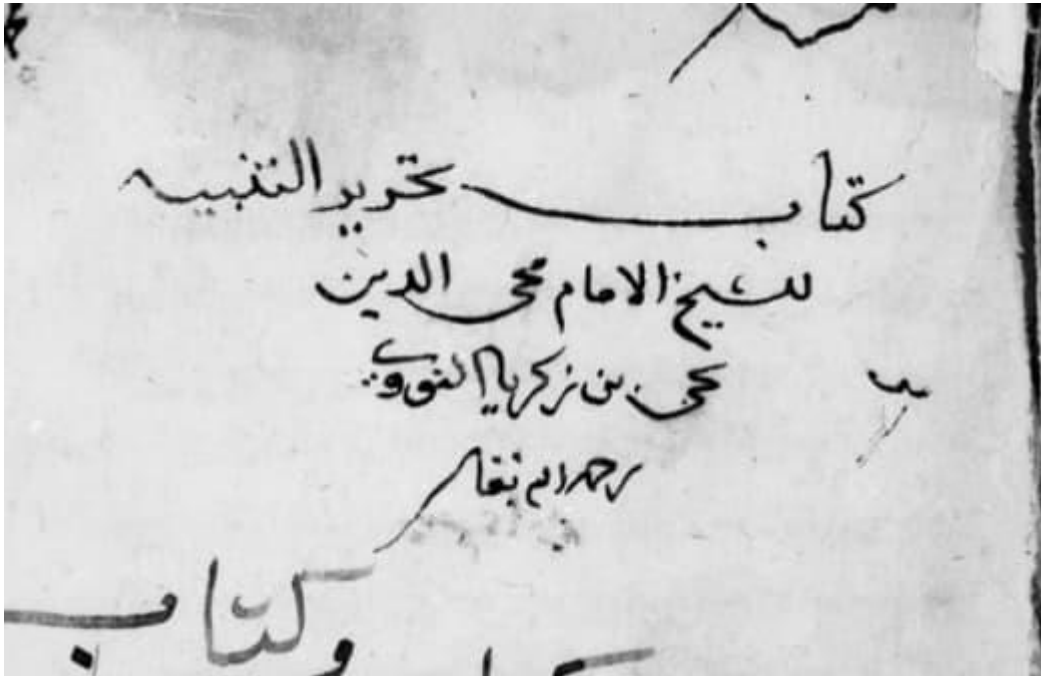 كتاب تحرير التنبيه
للشيخ الامام محيى الدين
يحيى بن زكريا النووي
رحمه الله تعالى
وكتاب